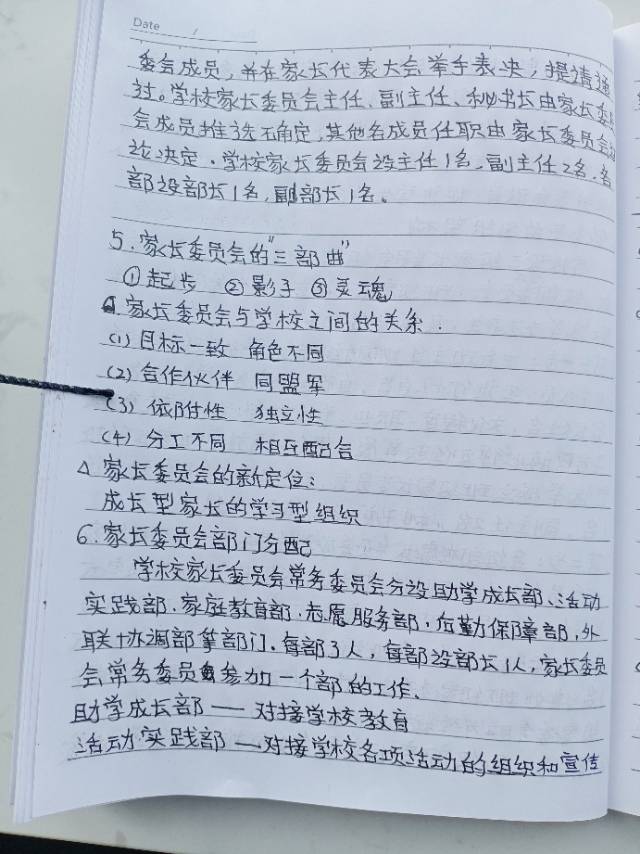 Date /
委会成员，并在家长代表大会举手表决，提请通
过。学校家长委员会主任、副主任、秘书长由家长委员
会成员推选确定，其他各成员任职由家长委员会
决定。学校家长委员会设主任1名，副主任2名，各
部设部长1名，副部长1名。
5.家长委员会的“三部曲”
①起步 ②影子 ③灵魂
△家长委员会与学校之间的关系.
(1)目标一致 角色不同
(2)合作伙伴 同盟军
(3)依附性 独立性
(4)分工不同 相互配合
△家长委员会的新定位：
成长型家长的学习型组织
6.家长委员会部门分配
学校家长委员会常务委员会分设助学成长部、活动
实践部、家庭教育部、志愿服务部，后勤保障部，外
联协调部等部门。每部3人，每部设部长1人，家长委员
会常务委员参加一个部的工作。
助学成长部——对接学校教育
活动实践部——对接学校各项活动的组织和宣传